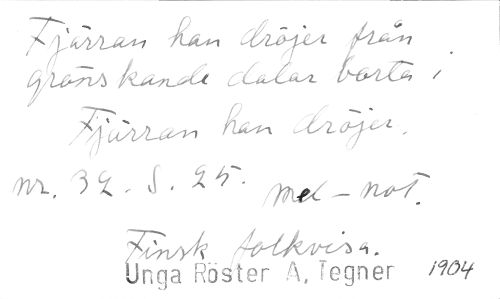 Fjärran han dröjer från
grönskande dalar borta i
Fjärran han dröjer.
nr. 32. S. 25. mel-not.
Finsk folkvisa.
Unga Röster A. Tegner 1904